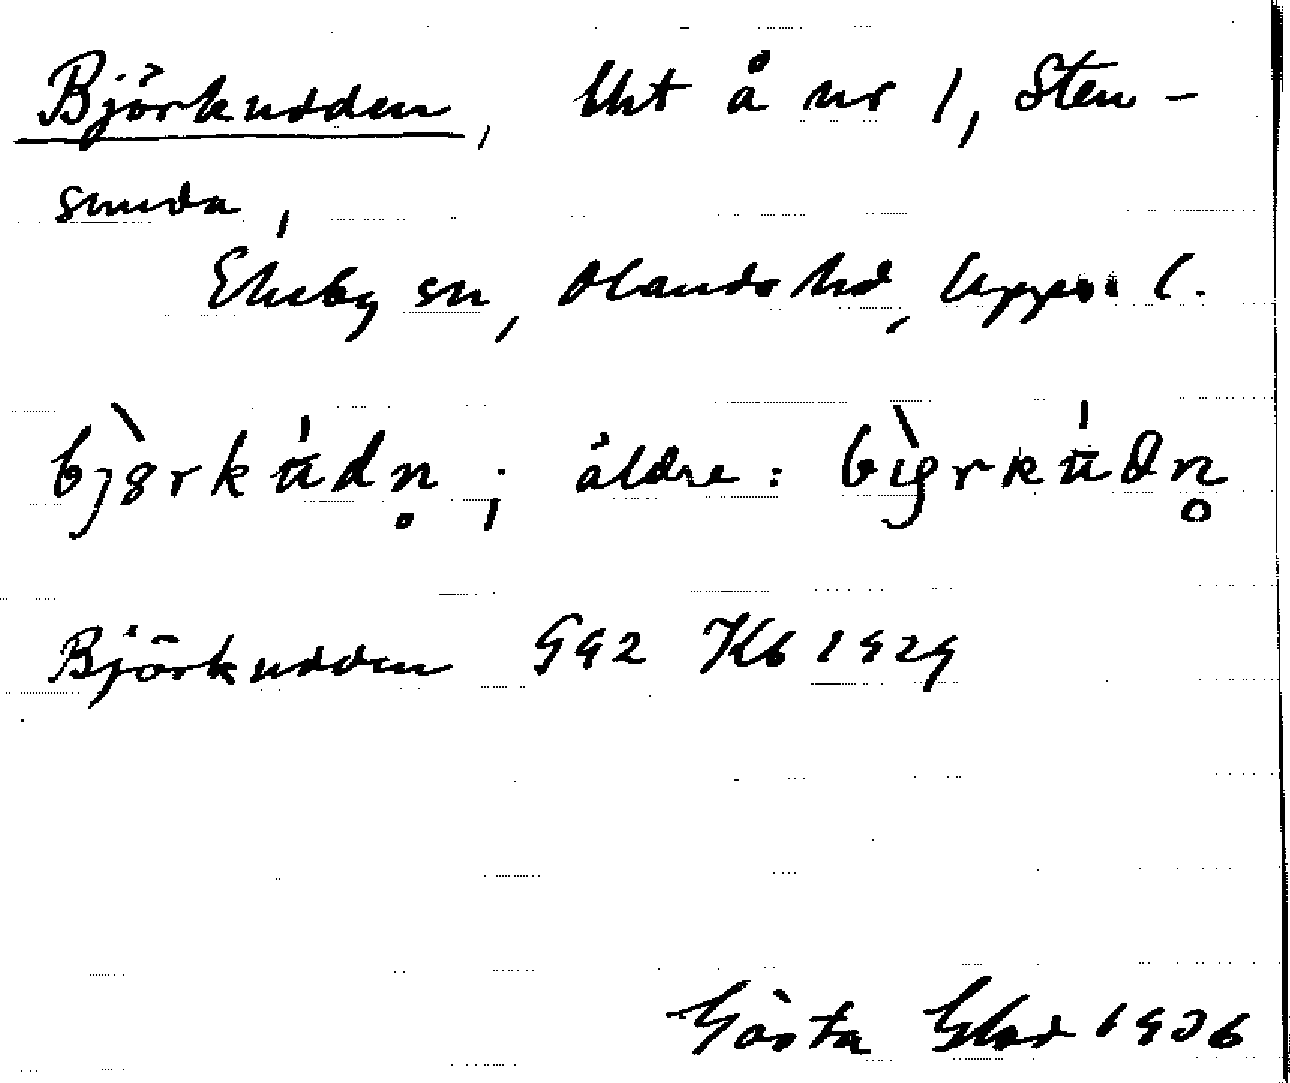 Björkudden, Uht å nr 1, Sten-
sunda,
Ekeby sn, Olands hd, Upps. l.
bjørkudn̥; äldre: biørkudn̥
Björkudden G92 Kb 1929
Gösta Glad 1936